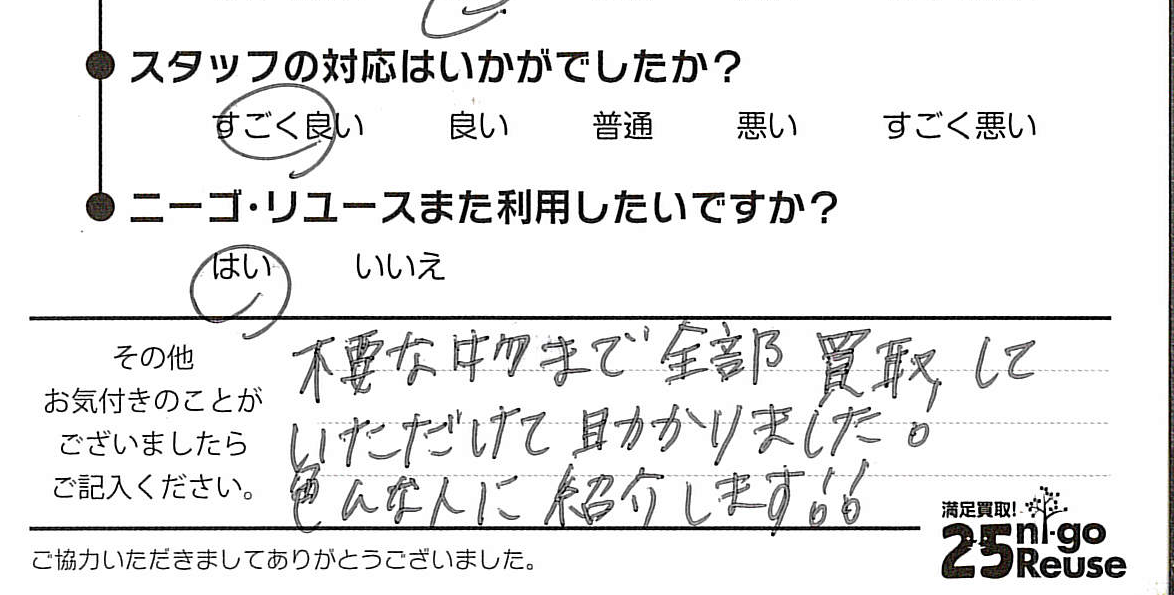 スタッフの対応はいかがでしたか?
すごく良い 良い 普通 悪い すごく悪い
ニーゴ・リユースまた利用したいですか?
はい いいえ
その他
お気付きのことが
ございましたら
ご記入ください。
不要な物まで全部買取して
いただけて助かりました。
色んな人に紹介します!!
満足買取!
25 ni-go
Reuse
ご協力いただきましてありがとうございました。